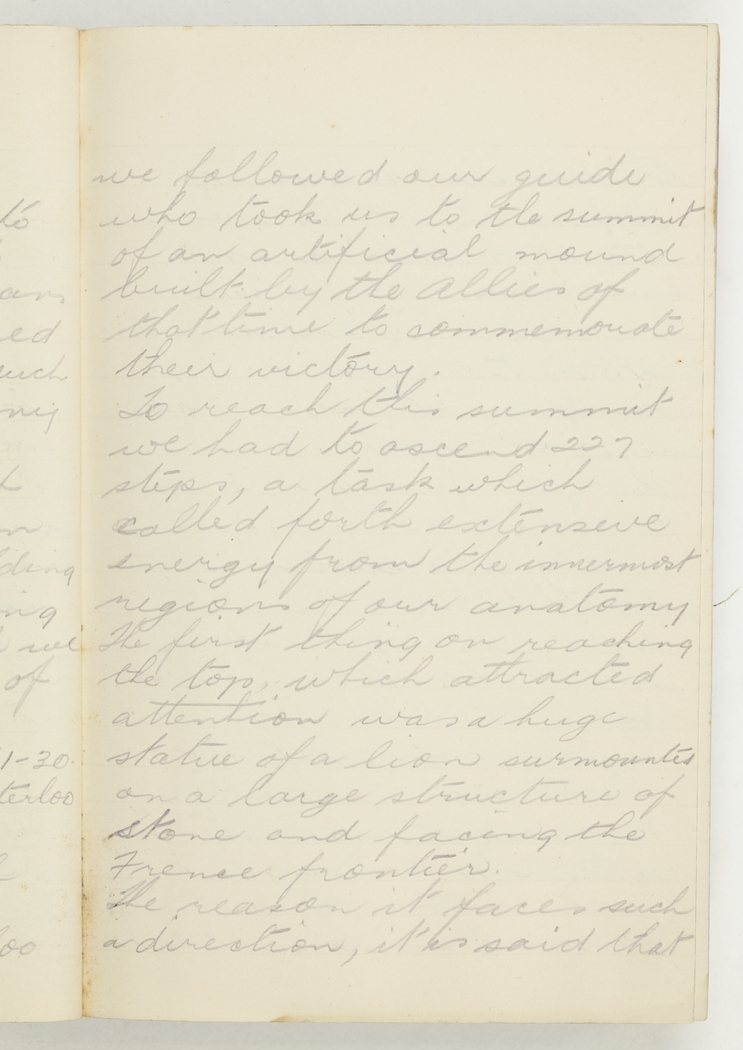 to
ans
ed
such
ing
ding
ing
we
of
1-30.
terloo
loo
we followed our guide
who took us to the summit
of an artificial mound
built by the Allies of
that time to commemorate
their victory.
To reach this summit
we had to ascend 227
steps, a task which
called forth extensive
energy from the innermost
regions of our anatomy
The first thing on reaching
the top, which attracted
attention was a huge
statue of a lion surmounted
on a large structure of
stone and facing the
Frence frontier.
The reason it faces such
a direction, it is said that